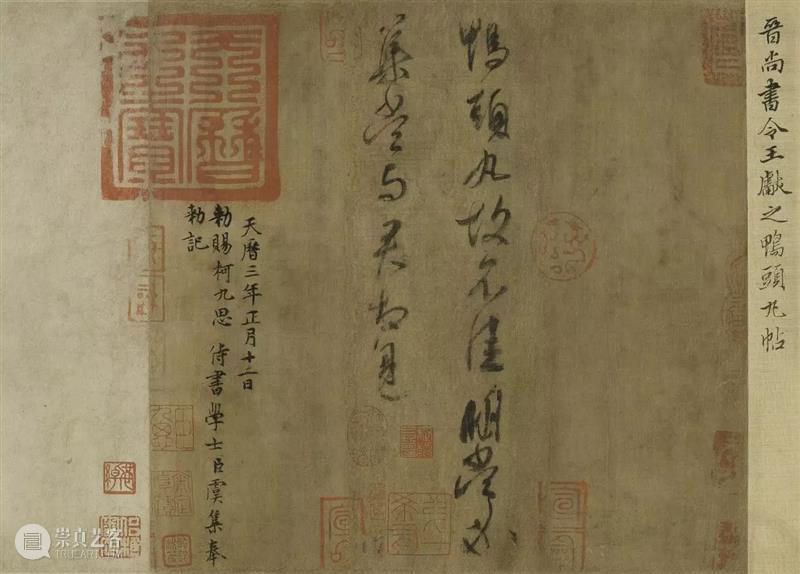 晉尚書令王獻之鴨頭丸帖
鴨頭丸故不佳明當必
集當與君相見
天曆三年正月十二日
勅賜柯九思 侍書學士臣虞集奉
勅記
天曆之寶
崇真艺客
TRUEART.COM